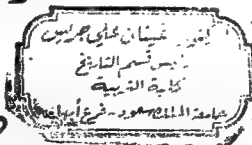 غيثان علي
رئيس قسم التاريخ
كلية التربية
جامعة الملك سعود - فرع أبها